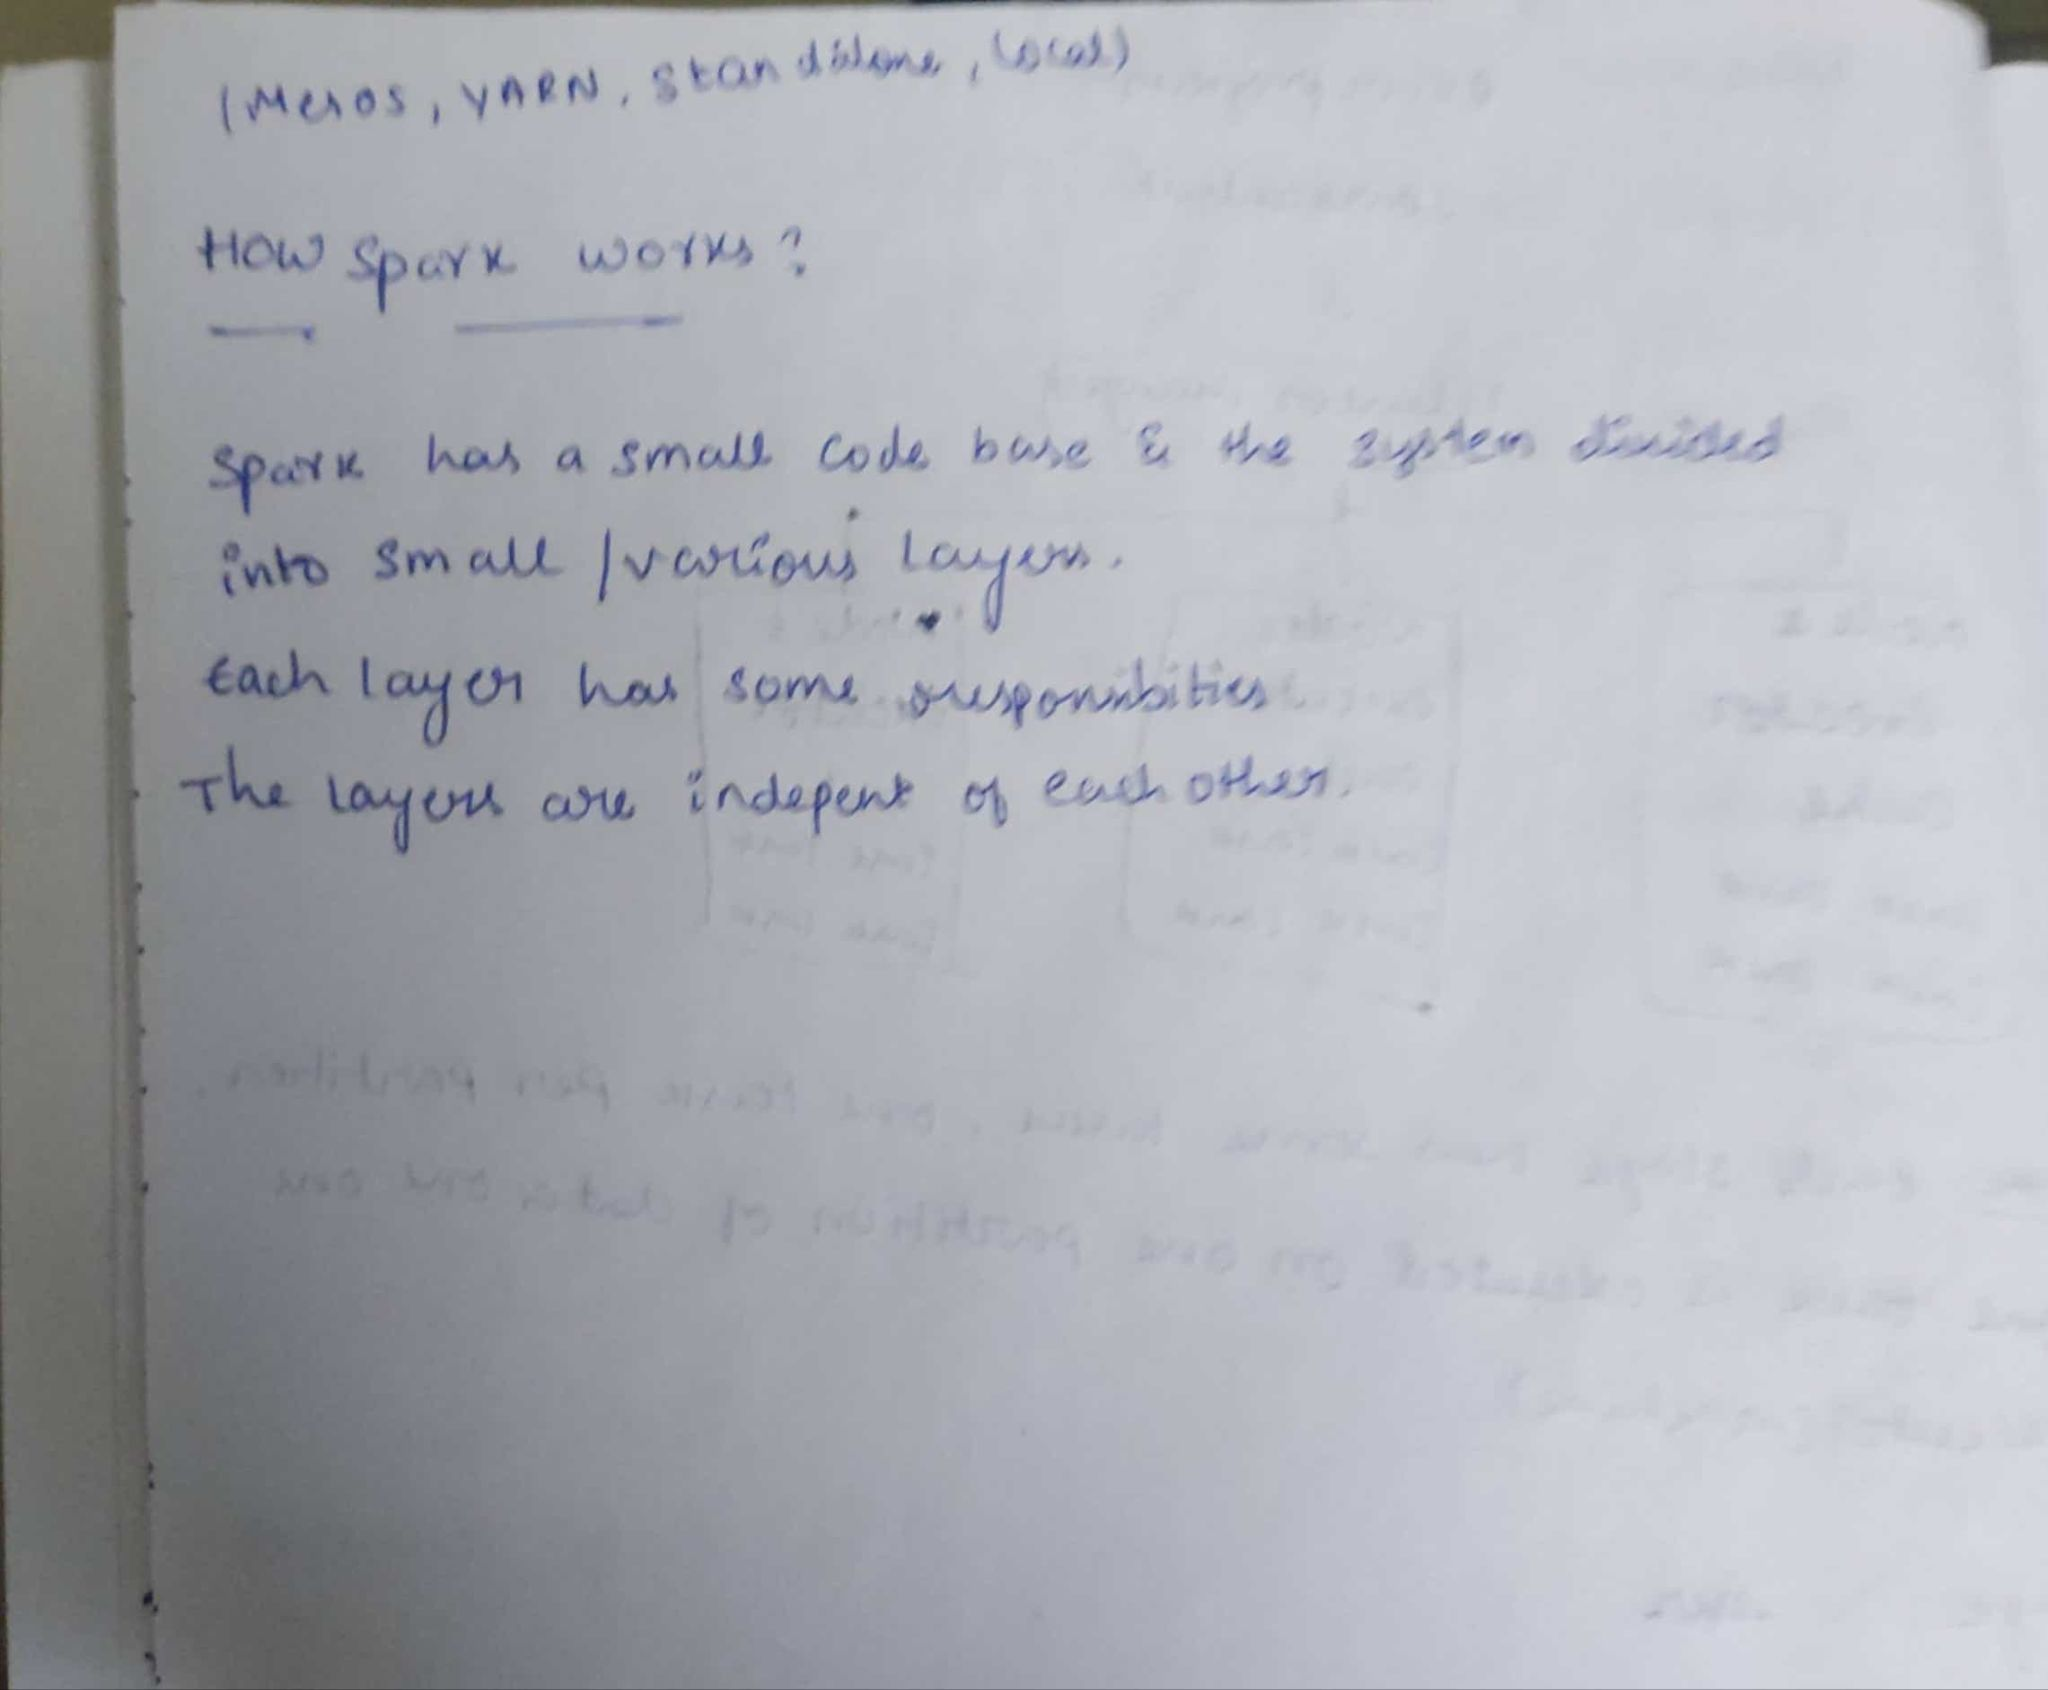 (Mesos, YARN, Standalone, Local)
How Spark works?
Spark has a small code base & the system divided
into small / various layers.
Each layer has some responsibities
The layers are indepent of each other.